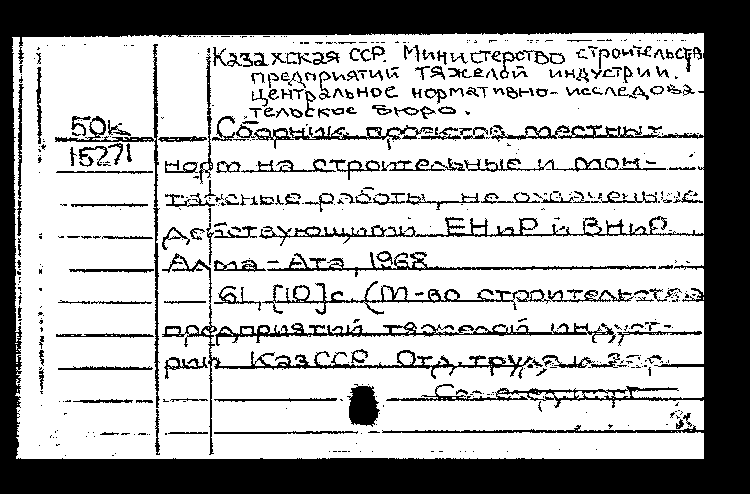 Казахская ССР. Министерство строительств
предприятий тяжелой индустрии.
Центральное нормативно-исследова-
тельское бюро.
50к
15271
Сборник проектов местных
норм на строительные и мон-
тажные работы, не охваченные
действующими ЕНиР и ВНиР.
Алма-Ата, 1968
61, [10]с. (М-во строительства
предприятий тяжелой индуст-
рии КазССР. Отд. труда и зар.
См. след. карт